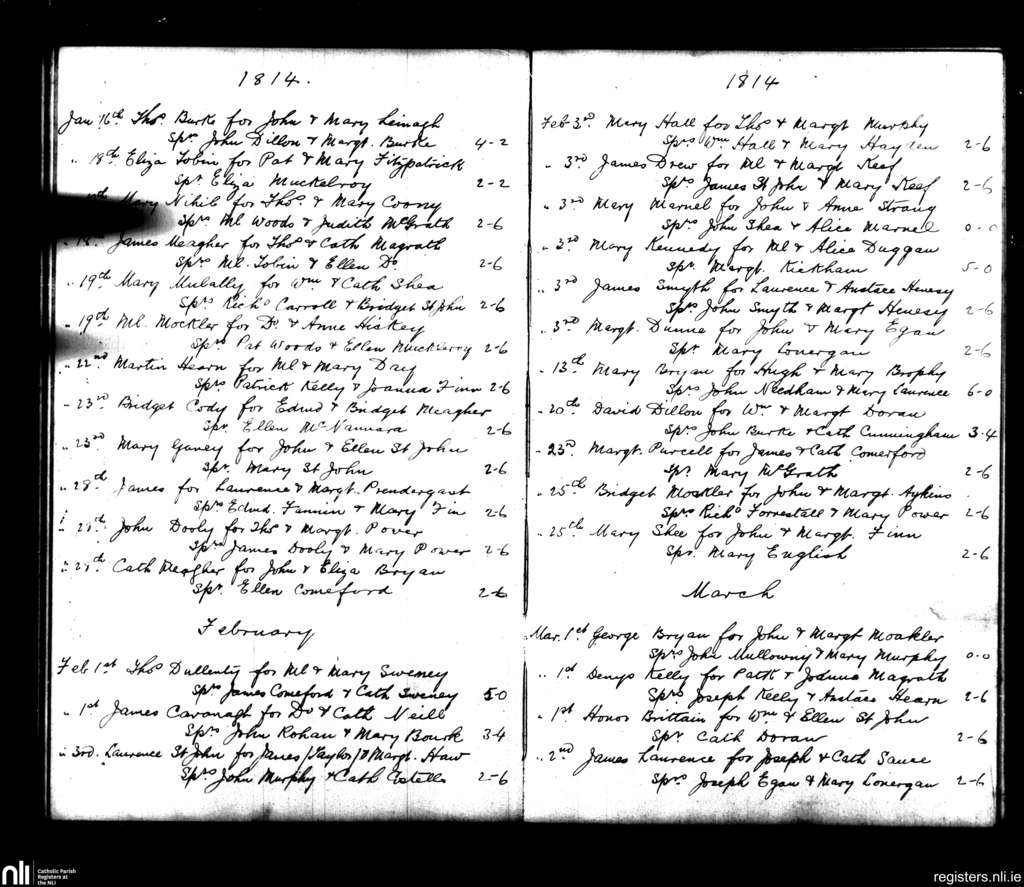 1814.
Jan 16th Thos. Burke for John & Mary Leinagh
Sprs. John Dillon & Margt. Burke 4-2
" 18th Eliza Tobin for Pat & Mary Fitzpatrick
Spr. Eliza Muckelroy 2-2
Mary Nihil for Thos. & Mary Coony
Sprs. Ml. Woods & Judith McGrath 2-6
" 18th James Meagher for Thos & Cath Magrath
Sprs. Ml. Tobin & Ellen Do. 2-6
" 19th Mary Mullally for Wm & Cath Shea
Sprs Richd Carroll & Bridget St John 2-6
" 19th Ml. Mockler for Do. & Anne Hickey
Sprs. Pat Woods & Ellen Muckleroy 2-6
" 22nd Martin Hearn for Ml & Mary Day
Sprs Patrick Kelly & Joanna Finn 2-6
" 23rd Bridget Cody for Edmd & Bridget Meagher
Spr. Ellen McNamara 2-6
" 23rd Mary Ganey for John & Ellen St John
Spr. Mary St John 2-6
" 28th James for Laurence & Margt. Prendergast
Sprs Edmd. Fannin & Mary Fin 2-6
" 28th John Dooly for Thos & Margt. Power
Sprs James Dooly & Mary Power 2-6
" 29th Cath Meagher for John & Eliza Bryan
Spr. Ellen Comeford 2-6
February
Feb 1st Thos Dullenty for Ml & Mary Sweney
Sprs James Comeford & Cath Sweney 5-0
" 1st James Cavanagh for Do & Cath Neill
Sprs John Rohan & Mary Bourk 3-4
" 3rd. Laurence St John for James/Taylor/& Margt. Haw
Sprs John Murphy & Cath Estells 2-6
1814
Feb 3rd Mary Hall for Thos & Margt Murphy
Sprs Wm. Hall & Mary Hayden 2-6
" 3rd James Drew for Ml & Margt Keef
Sprs James St John & Mary Keef 2-6
" 3rd Mary Marnel for John & Anne Strang
Sprs John Shea & Alice Marnel 0-0
" 3rd Mary Kennedy for Ml & Alice Duggan
Spr. Margt. Kickham 5-0
" 3rd James Smyth for Laurence & Anstace Henesy
Sprs John Smyth & Margt Henesy 2-6
" 3rd Margt. Dunne for John & Mary Egan
Spr Mary Lonergan 2-6
" 13th Mary Bryan for Hugh & Mary Brophy
Sprs John Needham & Mary Laurence 6-0
" 20th David Dillon for Wm & Margt Doran
Sprs John Burke & Cath Cunningham 3-4
" 23rd Margt. Purcell for James & Cath Comerford
Spr. Mary McGrath 2-6
" 25th Bridget Moakler for John & Margt. Aykins
Sprs Richd Forrestall & Mary Power 2-6
" 25th Mary Shee for John & Margt. Finn
Spr. Mary English 2-6
March
Mar. 1st George Bryan for John & Margt Moakler
Sprs John Mullowny & Mary Murphy 0-0
" 1st Denys Kelly for Patk & Joanna Magrath
Sprs Joseph Kelly & Anstace Hearn 2-6
" 1st Honor Brittain for Wm & Ellen St John
Spr Cath Doran 2-6
" 2nd James Laurence for Joseph & Cath Sause
Sprs Joseph Egan & Mary Lonergan 2-6
nli Catholic Parish Registers at the NLI
registers.nli.ie